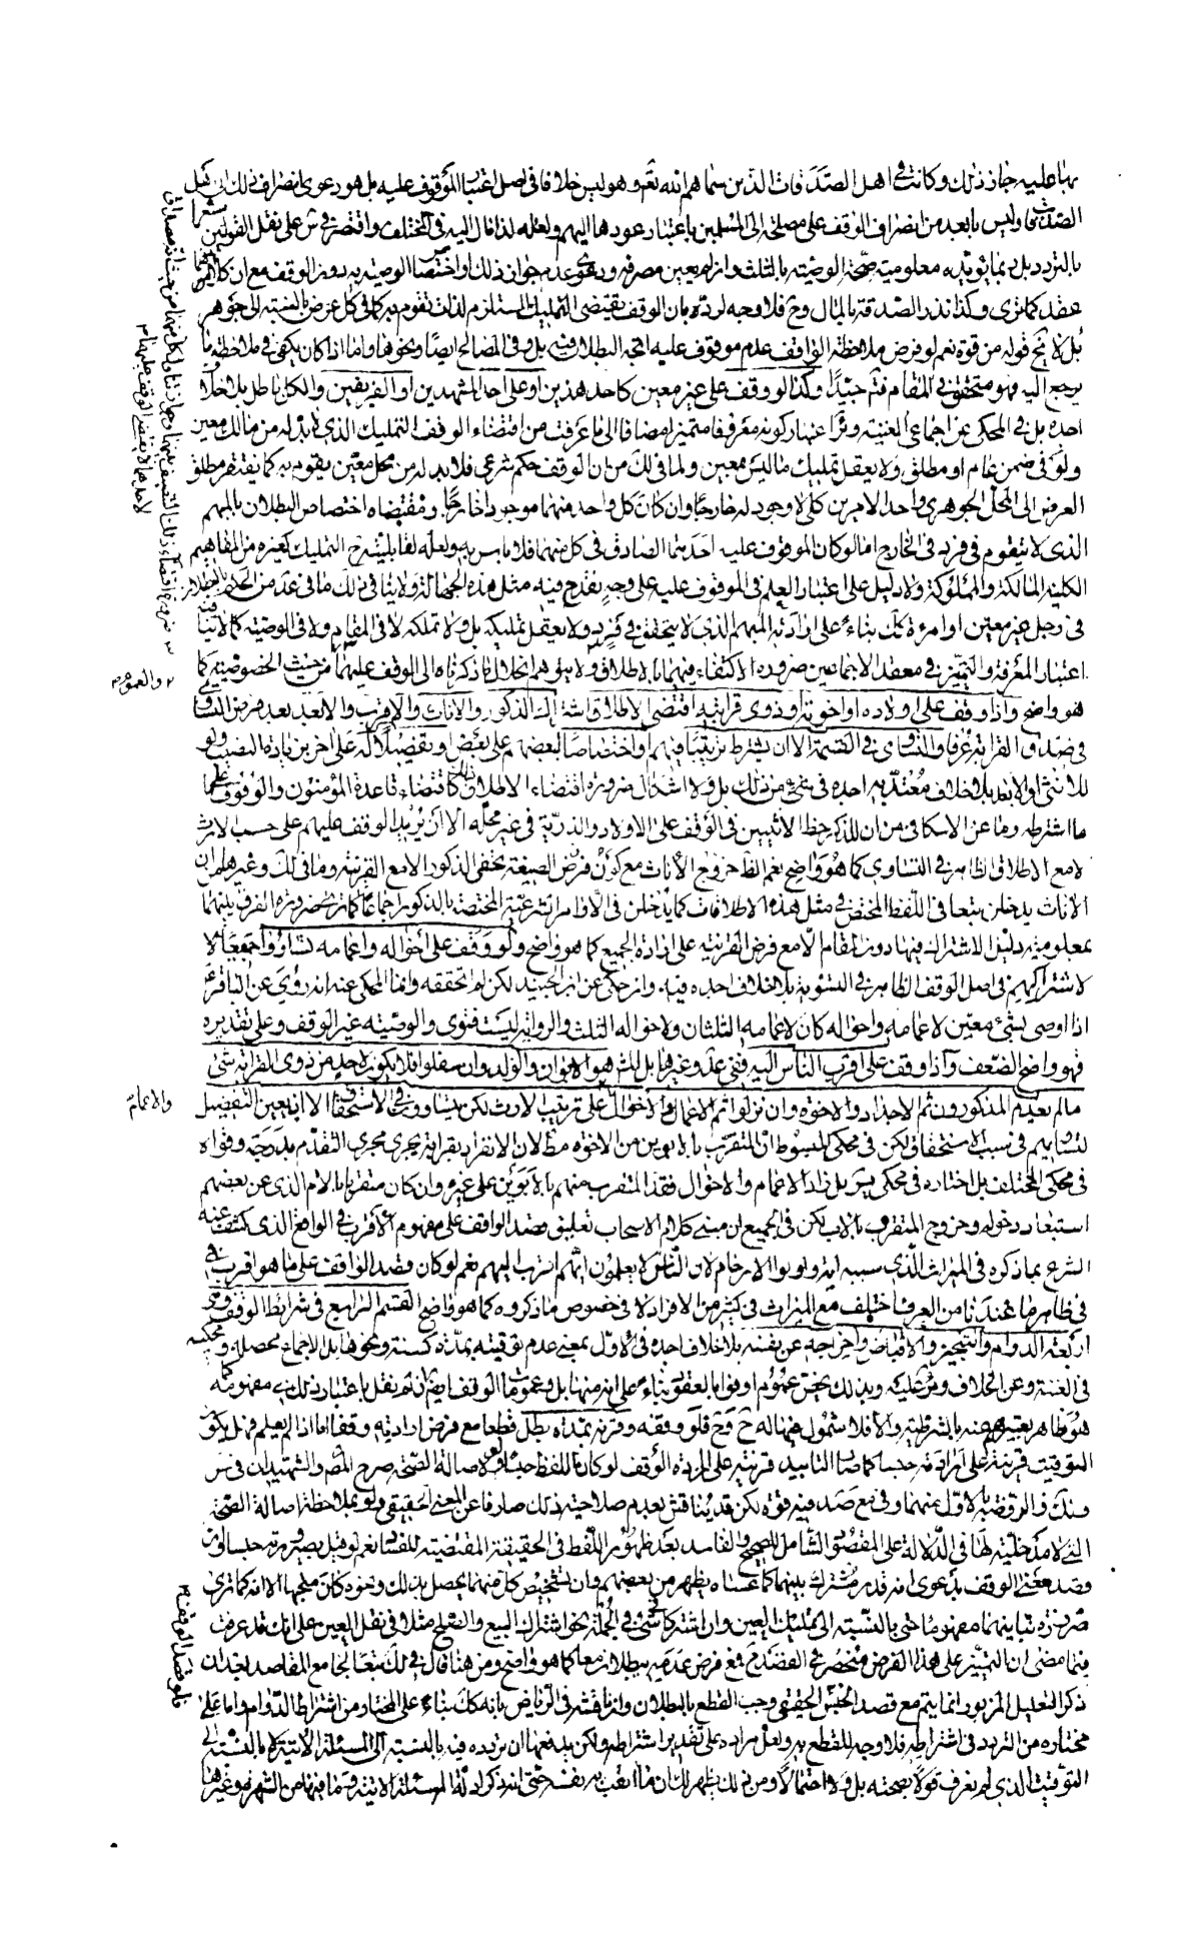 بها عليه جاز ذلك وكانت في اهل الصدقات الذين سماهم الله تعم وهو ليس خلافا في اصل اعتبار الموقوف عليه بل هو دعوى انصراف ذلك الى
الصدقات وليس بابعد من انصراف الوقف على مصلحة الى المسلمين باعتبار عودها اليهم ولعله لذا مال اليه في المختلف واقتصر في على نقل القولين
بالتردد بل ربما يؤيده معلومية صحة الوصية بالثلث وان لم يعين مصرفه ودعوى عدم جواز ذلك او اختصاص الوصية به دون الوقف مع ان كلا منهما
عقد كما ترى وكذا نذر الصدقة بالمال وح فلا وجه لرده بان الوقف يقتضي التمليك المستلزم لذلك تقوم به كما في كل عرض بالنسبة الى جوهر
بل لا يخ قوله من قوة نعم لو فرض ملاحظة الواقف عدم موقوف عليه اتجه البطلان فيه بل وفي المصالح ايضا ونحوها واما اذا كان يكفي في ملاحظته ما
يرجع اليه فهو متحقق في المقام فتم جيدا وكذا لو وقف على غير معين كاحد هذين او على احد المشهدين او الفريقين والكل باطل بلا خلاف
اجده بل في المحكي عن اجماعي الغنية و اعتبار كونه معروفا متميزا مضافا الى ما عرفت من اقتضاء الوقف التمليك الذي لابد له من مالك معين
ولو في ضمن عام او مطلق ولا يعقل تمليك ما ليس معين ولما في لك من ان الوقف حكم شرعي فلابد له من محل معين يقوم به كما يفتقر مطلق
العرض الى المحل الجوهري واحد الامرين كلي لا وجود له خارجا وان كان كل واحد منهما موجودا خارجا ومقتضاه اختصاص البطلان بالمبهم
الذي لا يتقوم في فرد في الخارج اما لو كان الموقوف عليه احدهما الصادق في كل منهما فلا باس به ولعله لقابليته ح التمليك كغيره من المفاهيم
الكلية المالكة والمملوكة ولا دليل على اعتبار العلم في الموقوف عليه على وجه يقدح فيه مثل هذه الجهالة ولا ينافي ذلك ما في عد من الحكم بالبطلان
في رجل غير معين او امرءة كك بناء على ارادة المبهم الذي لا يتحقق في فرد ولا يعقل تمليكه بل ولا تملكه لا في المقام ولا في الوصية كما لا ينافيه
اعتبار المعرفة والتميز في معقد الاجماعين ضرورة الاكتفاء فيهما بالاطلاق ولا يتوهم انحلال ما ذكرناه الى الوقف عليهما من حيث الخصوصية كما
هو واضح واذا وقف على اولاده او اخوته او ذوي قرابته اقتضى الاطلاق اشتراك الذكور والاناث والاقرب والابعد بعد فرض التساوي
في صدق القرابة عرفا والتساوي في القسمة الا ان يشترط ترتيبا فيهم او اختصاصا لبعضهم على بعض او تفضيلا له على اخر بزيادة النصيب ولو
للانثى او الابعد بلا خلاف معتد به اجده في شيء من ذلك بل ولا اشكال ضرورة اقتضاء الاطلاق ذلك كاقتضاء قاعدة المؤمنون والوقوف على
ما اشترطه وما عن الاسكافي من ان للذكر حظ الانثيين في الوقف على الاولاد والذرية في غير محله الا ان يريد الوقف عليهم على حسب الارث
لا مع الاطلاق الظاهر في التساوي كما هو واضح نعم الظ خروج الاناث مع كون فرض الصيغة يخص الذكور الا مع القرينة وما في لك وغيرها من ان
الاناث يدخلن تبعا في اللفظ المختص في مثل هذه الاطلاقات كما يدخلن في الاوامر الشرعية المختصة بالذكور اجماعا كما ترى ضرورة الفرق بينهما
بمعلومية دليل الاشتراك فيها دون المقام الا مع فرض القرينة على ارادة الجميع كما هو واضح ولو وقف على اخواله واعمامه تساووا جميعا
لاشتراكهم في اصل الوقف الظاهر في التسوية بلا خلاف اجده فيه وان حكي عن ابن الجنيد لكن لم نتحققه وانما المحكي عنه انه روي عن الباقر ع
اذا اوصى بشيء معين لاعمامه واخواله كان لاعمامه الثلثان ولاخواله الثلث والرواية ليست فتوى والوصية غير الوقف وعلى تقديره
فهو واضح الضعف واذا وقف على اقرب الناس اليه ففي عد وغيرها بل هو الابوان والولد وان سفلوا فلا يكون لاحد من ذوي القرابة شي
ما لم يعدم المذكورون ثم الاجداد والاخوة وان نزلوا ثم الاعمام والاخوال على ترتيب الارث لكن يتساوون في الاستحقاق الا ان يعين التفضيل
لتساويهم في سبب الاستحقاق لكن في محكي المبسوط ان المتقرب بالابوين من الاخوة لان الانفراد بقرابة يجري مجرى التقدم بدرجة وقواه
في محكي المختلف بل اختاره في محكي بل زاد الاعمام والاخوال فقدم المتقرب منهم بالابوين على غيره وان كان متقربا بالام الذي عن بعضهم
استبعاد دخوله وخروج المتقرب بالاب لكن في الجميع ان مبنى كلام الاصحاب تعليق قصد الواقف على مفهوم الاقرب في الواقع الذي كشف عنه
الشرع بما ذكره في الميراث الذي سببه اية واولوا الارحام لان الناس لا يعلمون ايهم اقرب اليهم نعم لو كان قصد الواقف على ما هو اقرب
في ظاهر ما عندنا من العرف اختلف مع الميراث في كثير من الافراد لا في خصوص ما ذكروه كما هو واضح القسم الرابع في شرائط الوقف وهي
اربعة الدوام والتنجيز والاقباض واخراجه عن نفسه بلا خلاف اجده في الاول بمعنى عدم توقيته بمدة كسنة ونحوها بل الاجماع بمحصله ومحكيه
في الغنية وعن الخلاف و عليه وبذلك يخص عموم اوفوا بالعقود بناء على انه منها بل وعمومات الوقف ايضا ان لم نقل باعتبار ذلك في مفهومه كما
هو ظاهر تعبيرهم عنه بالشرطية والا فلا شمول فيها له ح وح فلو وقفه وقرنه بمدة بطل قطعا مع فرض ارادته وقفا اما اذا لم يعلم فهل يكون
التوقيت قرينة على ارادته حبسا كما ان التابيد قرينة على ارادة الوقف لو كان باللفظ حبست ولاصالة الصحة صرح المص والشهيدان في س
ولك والروضة بالاول منهما وفي مع ضد فيه قوة لكن قد يناقش بعدم صلاحية ذلك صارفا عن المعنى الحقيقي ولو بملاحظة اصالة الصحة
التي لا مدخلية لها في الدلالة على المقصود الشامل للصحيح والفاسد بعد ظهور اللفظ في الحقيقة المقتضية للفساد نعم لو قيل بصيرورته حبسا وان
قصد معنى الوقف بدعوى انه قدر مشترك بينهما كما عساه يظهر من بعضهم وان تشخيص كل منهما يحصل بذلك ونحوه كان متجها الا انه كما ترى
ضرورة تباينهما مفهوما حتى بالنسبة الى تمليك العين وان اشتركا في شيء في الجملة نحو اشتراك البيع والصلح مثلا في نقل العين على انك قد عرفت
فيما مضى ان التميز على هذا الفرض منحصر في القصد فمع فرض عدمه يبطلان معا كما هو واضح ومن هنا قال في لك تبعا لجامع المقاصد بعد ان
ذكر التعليل المزبور انما يتم مع قصد الحبس الحقيقي وجب القطع بالبطلان وان ناقشه في الرياض بانه كك بناء على المختار من اشتراط الدوام واما على
مختاره من التردد في اشتراطه فلا وجه للقطع به ولعل مراده على تقدير اشتراطه ولكن يدفعها ان تردده فيه بالنسبة الى المسئلة الاتية لا بالنسبة الى
التوقيت الذي لم نعرف قولا بصحته بل ولا احتمالا ومن ذلك يظهر لك ان ما اتعب به نفسه حتى انه ذكر ادلة المسئلة الاتية وما فيها من الشهرة وغيرها
والعموم
والاعمام
فلو قصد الوقف